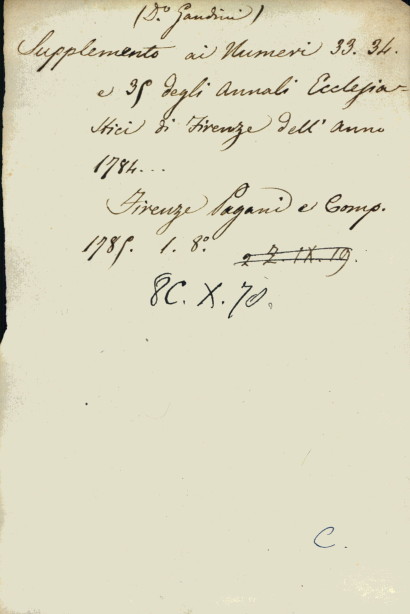 (D.º Gandini)
Supplemento ai Numeri 33. 34.
e 35 degli Annali Ecclesia=
stici di Firenze dell' Anno
1784...
Firenze Pagani e Comp.
1785. 1. 8.º 2 Z. IX. 19.
8C. X. 70.
C.